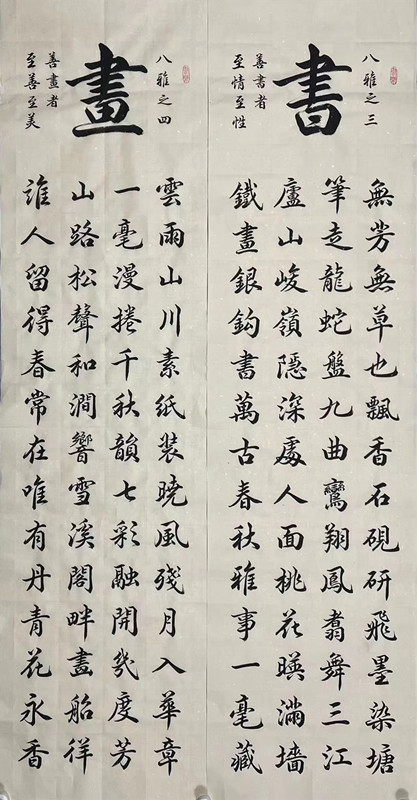 八雅之三
書
善書者
至情至性
無芳無草也飄香石硯研飛墨染塘
筆走龍蛇盤九曲鸞翔鳳翥舞三江
廬山峻嶺隱深處人面桃花暎滿墻
鐵畫銀鈎書萬古春秋雅事一毫藏
八雅之四
畫
善畫者
至善至美
雲雨山川素紙裝曉風殘月入華章
一毫漫捲千秋韻七彩融開幾度芳
山路松聲和澗響雪溪閣畔畫船徉
誰人留得春常在唯有丹青花永香